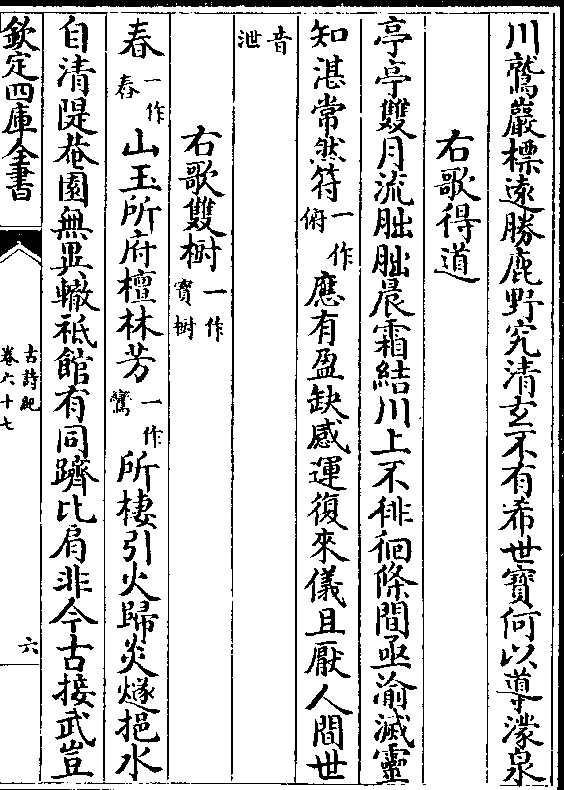 川鷲巖標遠勝鹿野究清玄不有希世寶何以導濛泉
右歌得道
亭亭雙月流朏朏晨霜結川上不徘徊條間亟渝滅靈
知湛常然符一作俯應有盈缺感運復來儀且厭人間世
音泄
右歌雙樹一作寳树
春一作春山玉所府檀林芳一作鸞所棲引火歸炎燧挹水
自清隄菴園無異轍祗館有同躋比肩非今古接武豈
欽定四庫全書
古詩紀
卷六十七
六